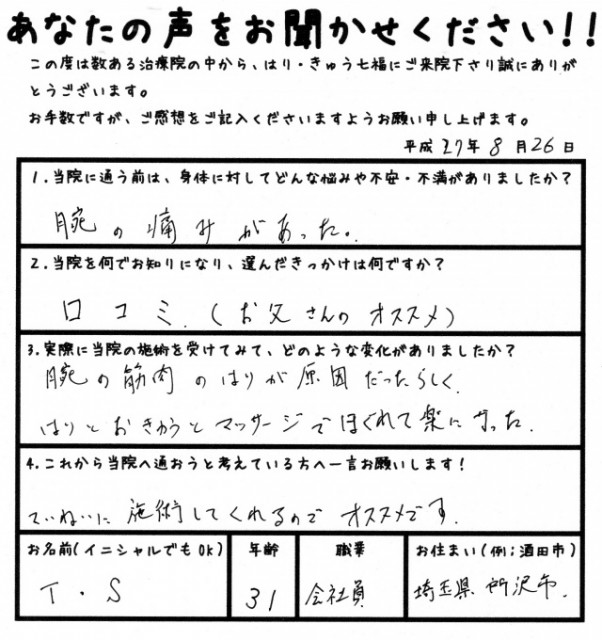 あなたの声をお聞かせください!!
この度は数ある治療院の中から、はり・きゅう七福にご来院下さり誠にありが
とうございます。
お手数ですが、ご感想をご記入くださいますようお願い申し上げます。
平成 27年 8月 26日
1.当院に通う前は、身体に対してどんな悩みや不安・不満がありましたか?
腕の痛みがあった。
2.当院を何でお知りになり、選んだきっかけは何ですか?
口コミ.(お父さんのオススメ)
3.実際に当院の施術を受けてみて、どのような変化がありましたか?
腕の筋肉のはりが原因だったらしく、
はりとおきゅうとマッサージでほぐれて楽になった.
4.これから当院へ通おうと考えている方へ一言お願いします!
ていねいに施術してくれるのでオススメです.
お名前(イニシャルでもOK) 年齢 職業 お住まい(例;酒田市)
T・S 31 会社員 埼玉県所沢市.